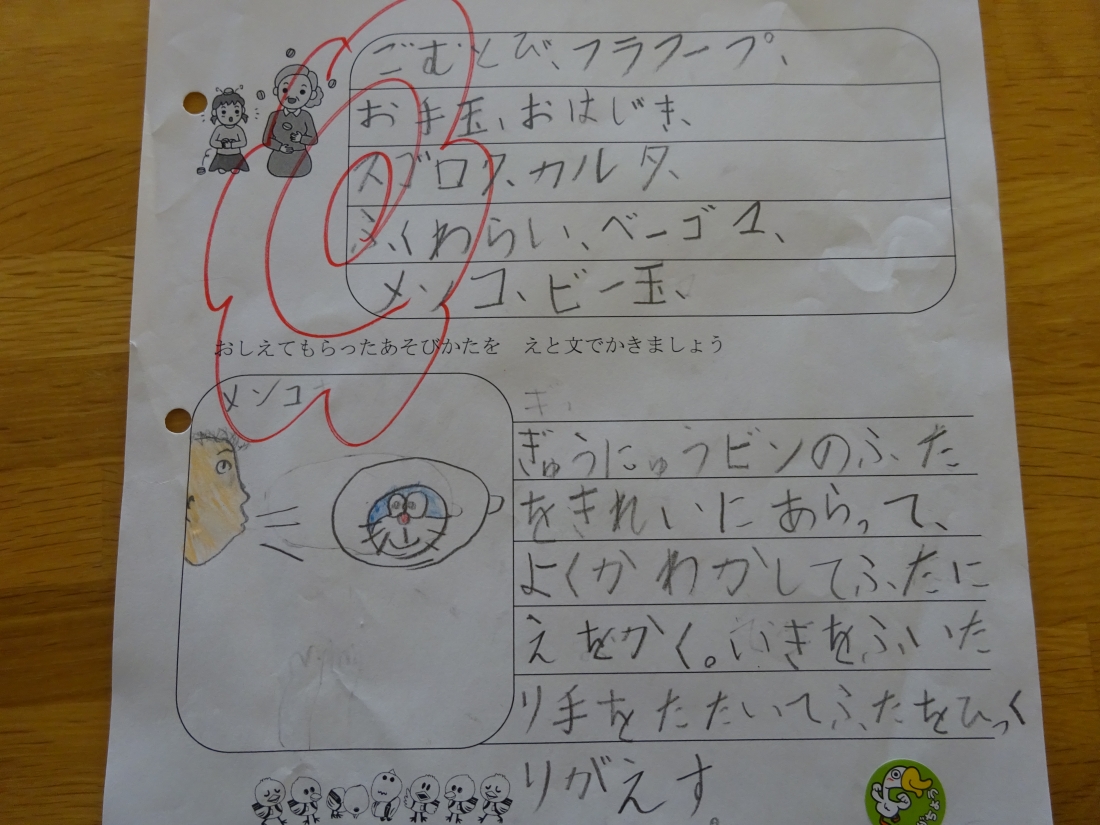 ごむとび、フラフープ、
お手玉、おはじき、
スゴロク、カルタ、
ふくわらい、ベーゴマ、
メンコ、ビー玉、
おしえてもらったあそびかたを　えと文でかきましょう
メンコ
ぎゅうにゅうビンのふた
をきれいにあらって、
よくかわかしてふたに
えをかく。いきをふいた
り手をたたいてふたをひっく
りがえす。